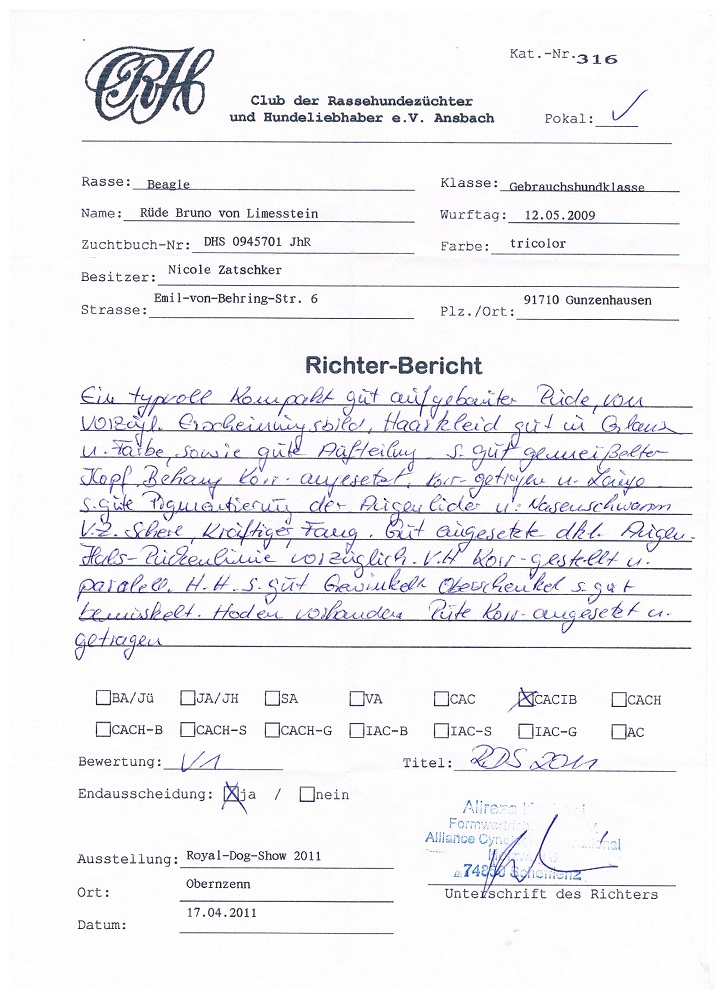 CRH
Kat.-Nr. 316
Club der Rassehundezüchter
und Hundeliebhaber e.V. Ansbach
Pokal: ✓
Rasse: Beagle
Klasse: Gebrauchshundklasse
Name: Rüde Bruno von Limesstein
Wurftag: 12.05.2009
Zuchtbuch-Nr: DHS 0945701 JhR
Farbe: tricolor
Besitzer: Nicole Zatschker
Strasse: Emil-von-Behring-Str. 6
Plz./Ort: 91710 Gunzenhausen
Richter-Bericht
Ein typvoll Kompakt gut aufgebauter Rüde, von
vorzügl. Erscheinungsbild, Haarkleid gut in Glanz
u. Farbe, sowie gute Aufteilung. s. gut gemeißelter
Kopf, Behang Korr. angesetzt, Korr. getragen u. Länge
s. gute Pigmentierung der Augenlider u. Nasenschwamm
V.Z. Schere, Kräftiger Fang. Gut eingesetzte dkl. Augen.
Hals-Rückenlinie vorzüglich. V.H Korr-gestellt u.
paralell. H.H. s. gut Gewinkelt Oberschenkel s. gut
bemuskelt. Hoden vorhanden Rute Korr-angesetzt u.
getragen
BA/Jü JA/JH SA VA CAC CACIB CACH
CACH-B CACH-S CACH-G IAC-B IAC-S IAC-G AC
Bewertung: V1
Titel: RDS 2011
Endausscheidung: ja / nein
Alireza
Alliance
Ausstellung: Royal-Dog-Show 2011
Ort: Obernzenn
Unterschrift des Richters
Datum: 17.04.2011